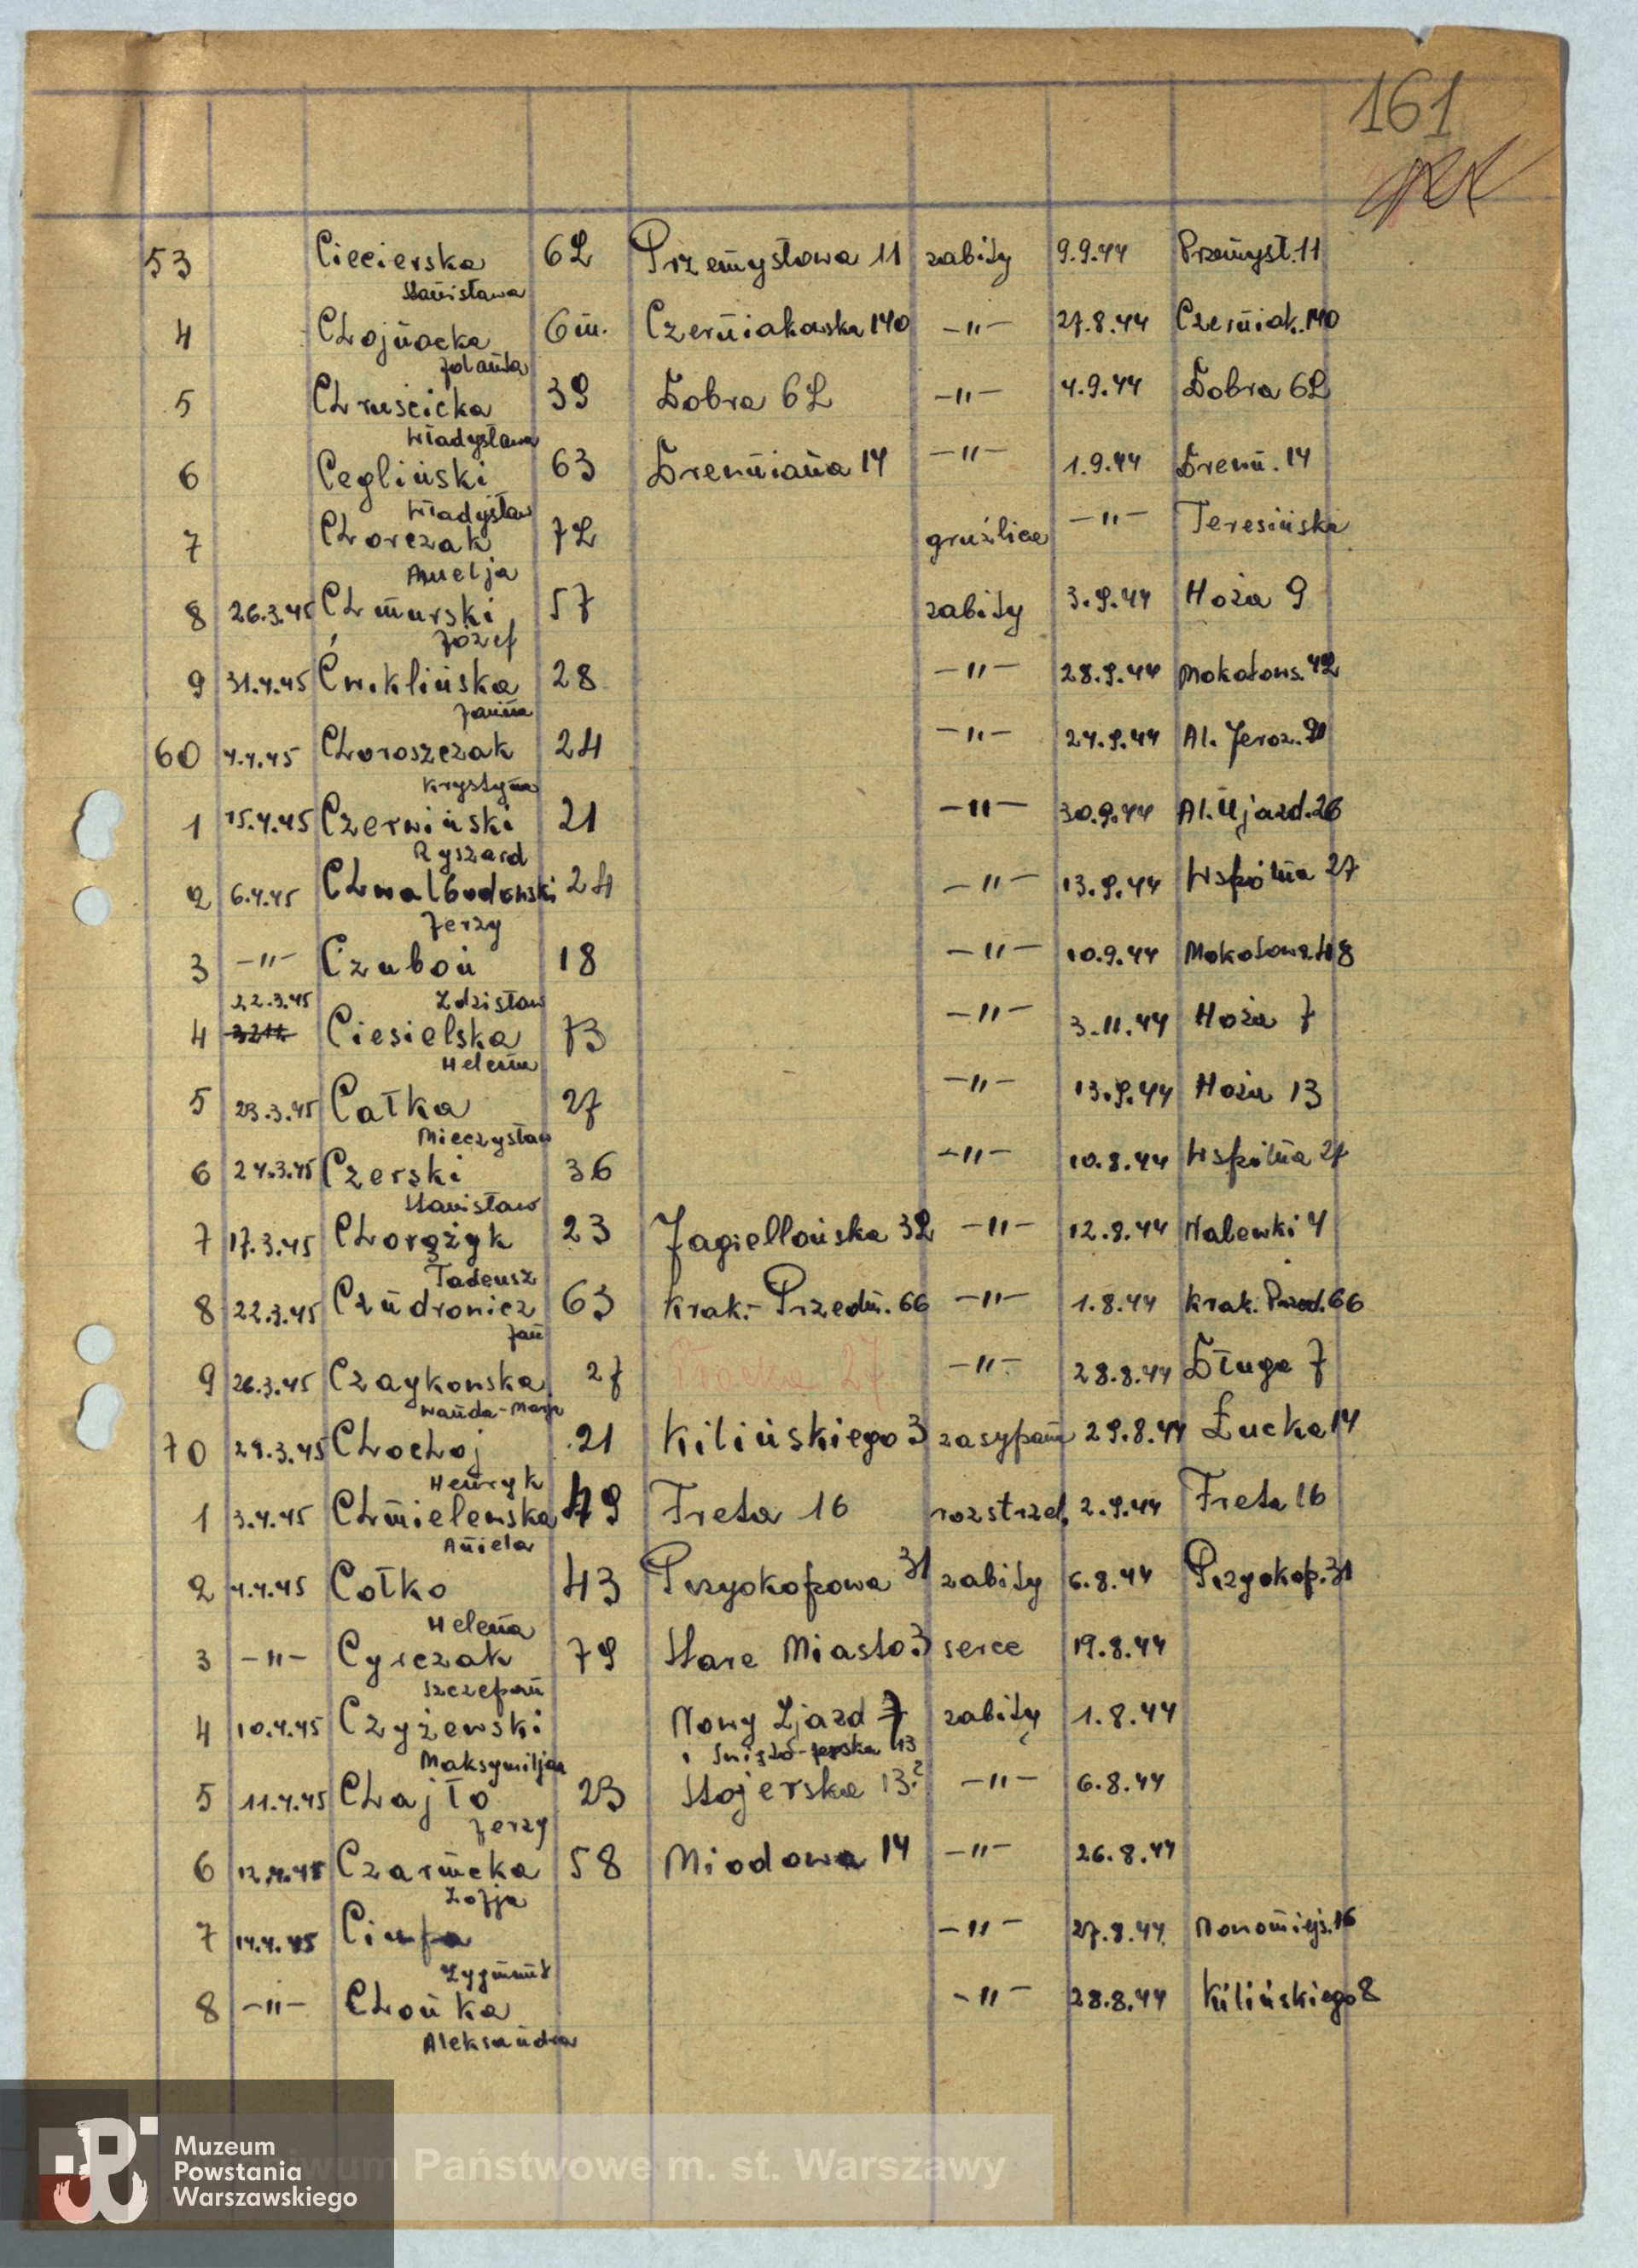 161
53 Ciecierska 62 Przemysłowa 11 zabity 9.9.44 Przemysł. 11
Stanisława
4 Chojnacka 6 m. Czerniakowska 140 -"- 27.8.44 Czerniak. 140
Jolanta
5 Chruscicka 39 Dobra 62 -"- 4.9.44 Dobra 62
Władysława
6 Cegliński 63 Drewniana 14 -"- 1.9.44 Drewn. 14
Władysław
7 Chorczak 72 gruźlica -"- Teresińska
Amelja
8 26.3.45 Chmurski 57 zabity 3.9.44 Hoża 9
Józef
9 31.4.45 Ćwiklińska 28 -"- 28.9.44 Mokotows. 42
Janina
60 4.4.45 Choroszczak 24 -"- 24.9.44 Al. Jeroz.
Krystyna
1 15.4.45 Czerwiński 21 -"- 30.9.44 Al. Ujazd. 26
Ryszard
2 6.4.45 Chwalbodowski 24 -"- 13.9.44 Wspólna 27
Jerzy
3 -"- Czuboń 18 -"- 10.9.44 Mokotows. 48
Zdzisław
22.3.45
4 Ciesielska 73 -"- 3.11.44 Hoża 7
Helena
5 23.3.45 Całka 27 -"- 13.9.44 Hoża 13
Mieczysław
6 24.3.45 Czerski 36 -"- 10.8.44 Wspólna 27
Stanisław
7 17.3.45 Chorążyk 23 Jagiellońska 32 -"- 12.8.44 Nalewki 4
Tadeusz
8 22.3.45 Czudronicz 63 Krak.-Przedm. 66 -"- 1.8.44 Krak. Przed. 66
Jan
9 26.3.45 Czaykowska 27 Płocka 27 -"- 28.8.44 Długa 7
Wanda-Marja
70 29.3.45 Chochoj 21 Kilińskiego 3 zasypan 29.8.44 Łucka 14
Henryk
1 3.4.45 Chmielewska 49 Freta 16 rozstrzel. 2.9.44 Freta 16
Aniela
2 4.4.45 Cołko 43 Przyokopowa 31 zabity 6.8.44 Przyokop. 31
Helena
3 -"- Cyrczak 79 Stare Miasto 3 serce 19.8.44
Szczepan
4 10.4.45 Czyżewski Nowy Zjazd 7 zabity 1.8.44
Maksymiljan
5 11.4.45 Chajło 23 Stojerska 13? -"- 6.8.44
Jerzy
6 12.4.45 Czarnecka 58 Miodowa 14 -"- 26.8.44
Zofja
7 14.4.45 Ciupa -"- 27.8.44 Nowomiejs. 16
Zygmunt
8 -"- Chońka -"- 28.8.44 Kilińskiego 8
Aleksandra
Muzeum
Powstania
Warszawskiego
Państwowe m. st. Warszawy